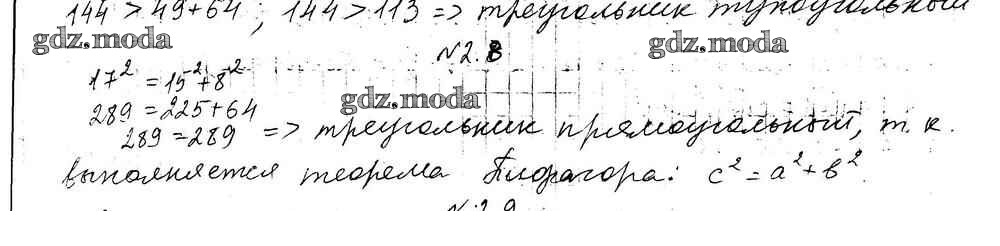 144 > 49+64; 144 > 113 => треугольник тупоугольный
gdz.moda
gdz.moda
№2.8
17² = 15² + 8²
gdz.moda
289 = 225 + 64
289 = 289 => треугольник прямоугольный, т.к.
выполняется теорема Пифагора: c² = a² + b²
№2.9